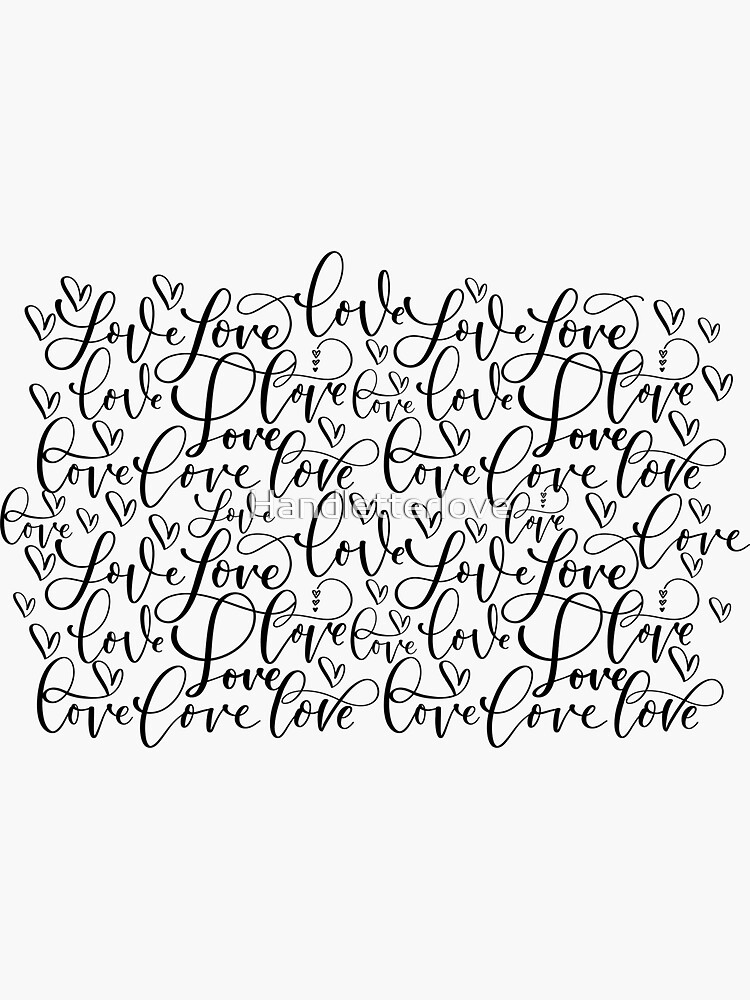 Love Love love Love Love
love love love love love
Love Love
love love love love love love
love Love Handletterlove love
Love Love love Love Love love
love love love love love
Love Love
love love love love love love